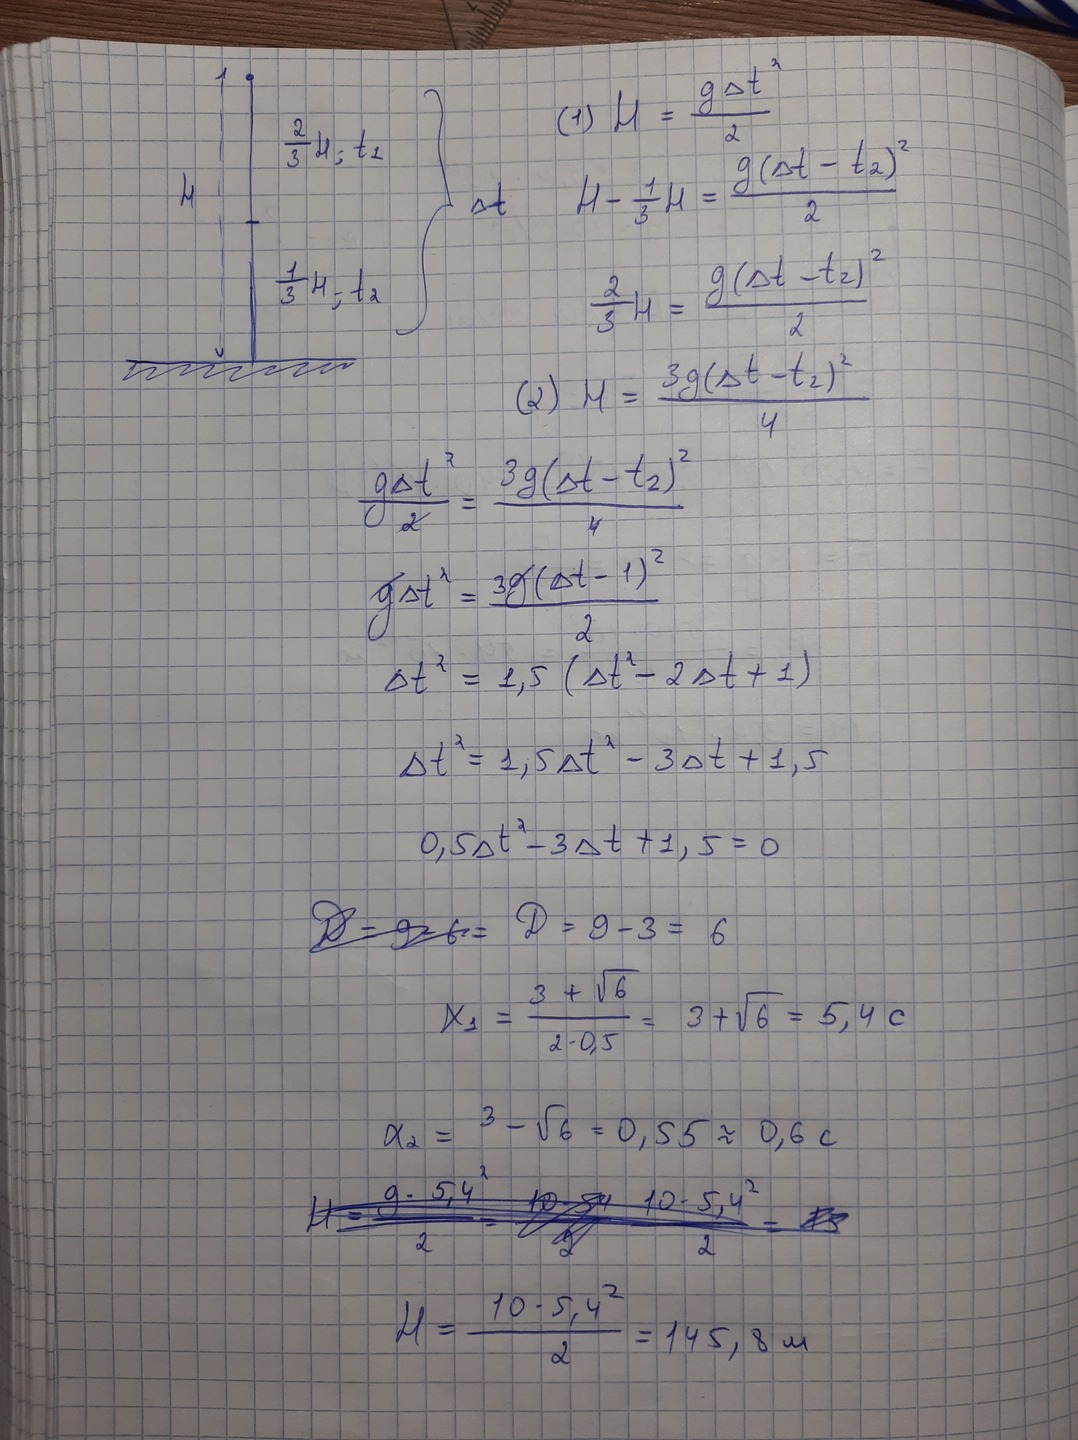 1
2/3 H; t₁
H
1/3 H; t₂
Δt
(1) H = gΔt²/2
H - 1/3 H = g(Δt - t₂)²/2
2/3 H = g(Δt - t₂)²/2
(2) H = 3g(Δt - t₂)²/4
gΔt²/2 = 3g(Δt - t₂)²/4
gΔt² = 3g(Δt - 1)²/2
Δt² = 1,5 (Δt² - 2Δt + 1)
Δt² = 1,5Δt² - 3Δt + 1,5
0,5Δt² - 3Δt + 1,5 = 0
D = 9 - 6 = D = 9 - 3 = 6
x₁ = (3 + √6)/(2·0,5) = 3 + √6 = 5,4 с
x₂ = 3 - √6 = 0,55 ≈ 0,6 с
H = g · 5,4²/2 = 10 · 54/2 10 · 5,4²/2 =
H = 10 · 5,4²/2 = 145,8 м